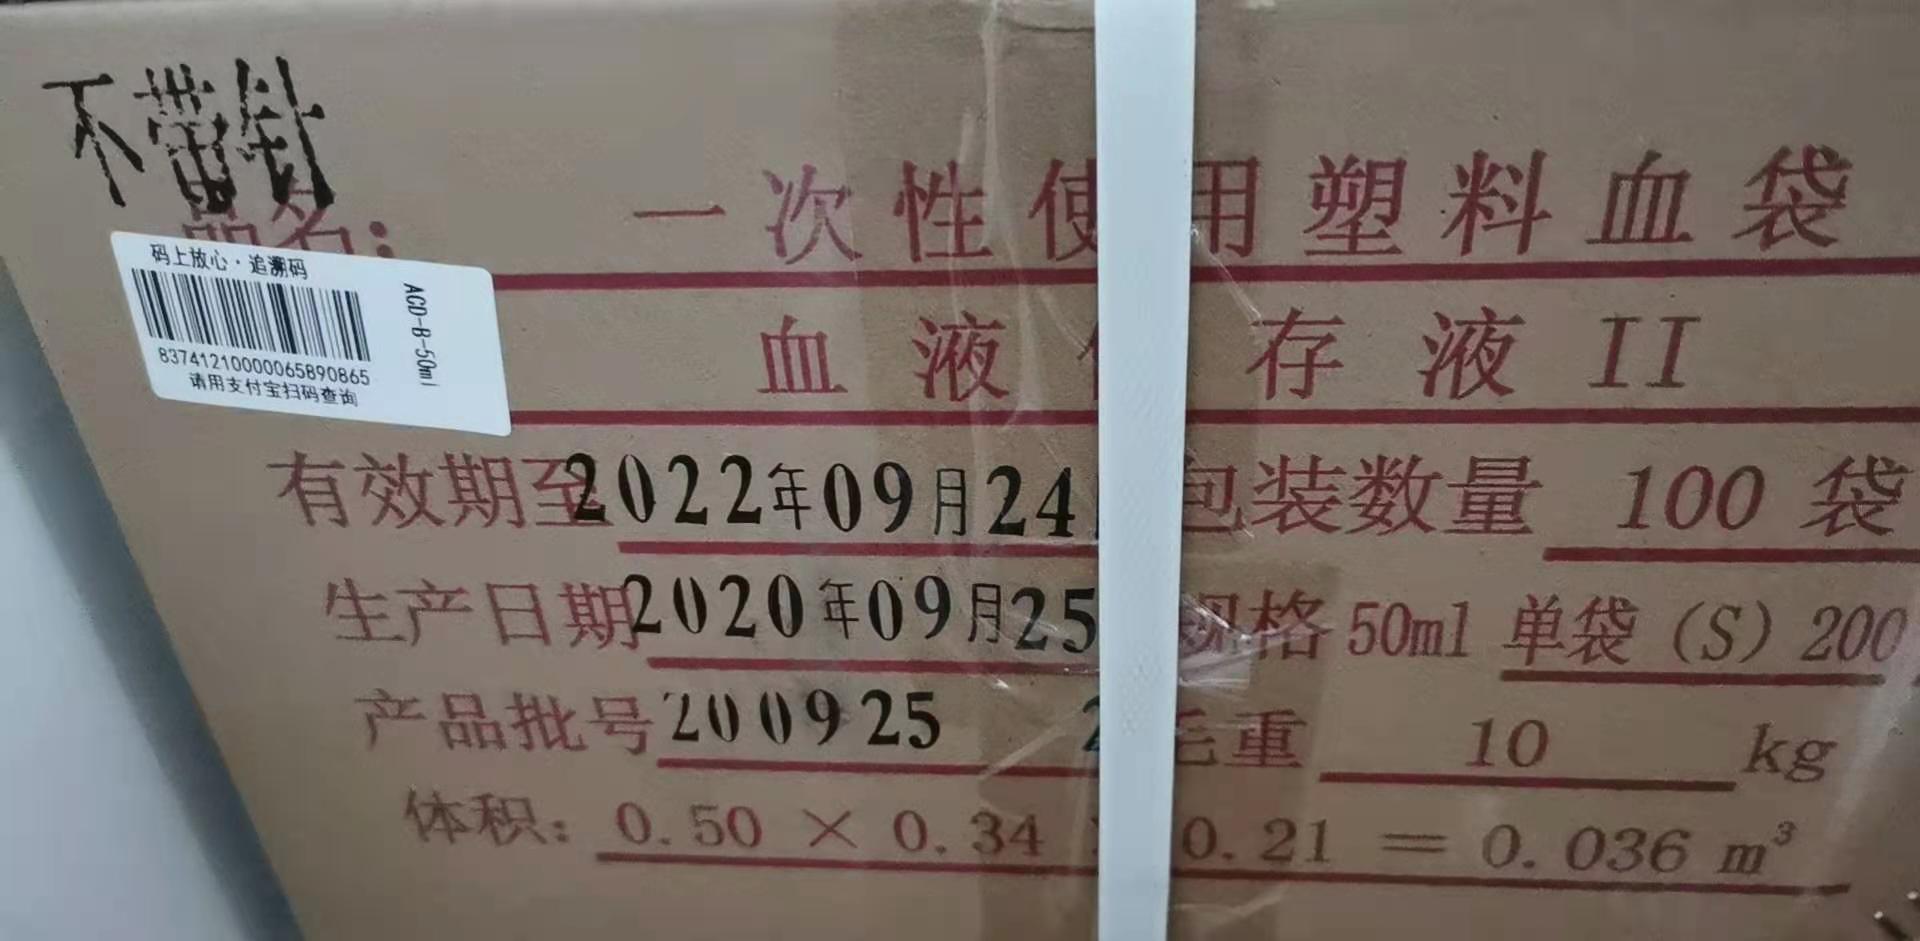 不带针
品名： 一次性使用塑料血袋
码上放心·追溯码
ACD-B-50ml
83741210000065890865
请用支付宝扫码查询
血液 存液II
有效期至2022年09月24 包装数量 100 袋
生产日期2020年09月25 规格50ml 单袋（S）200
产品批号200925 2 毛重 10 kg
体积： 0.50 × 0.34 0.21 = 0.036 m³